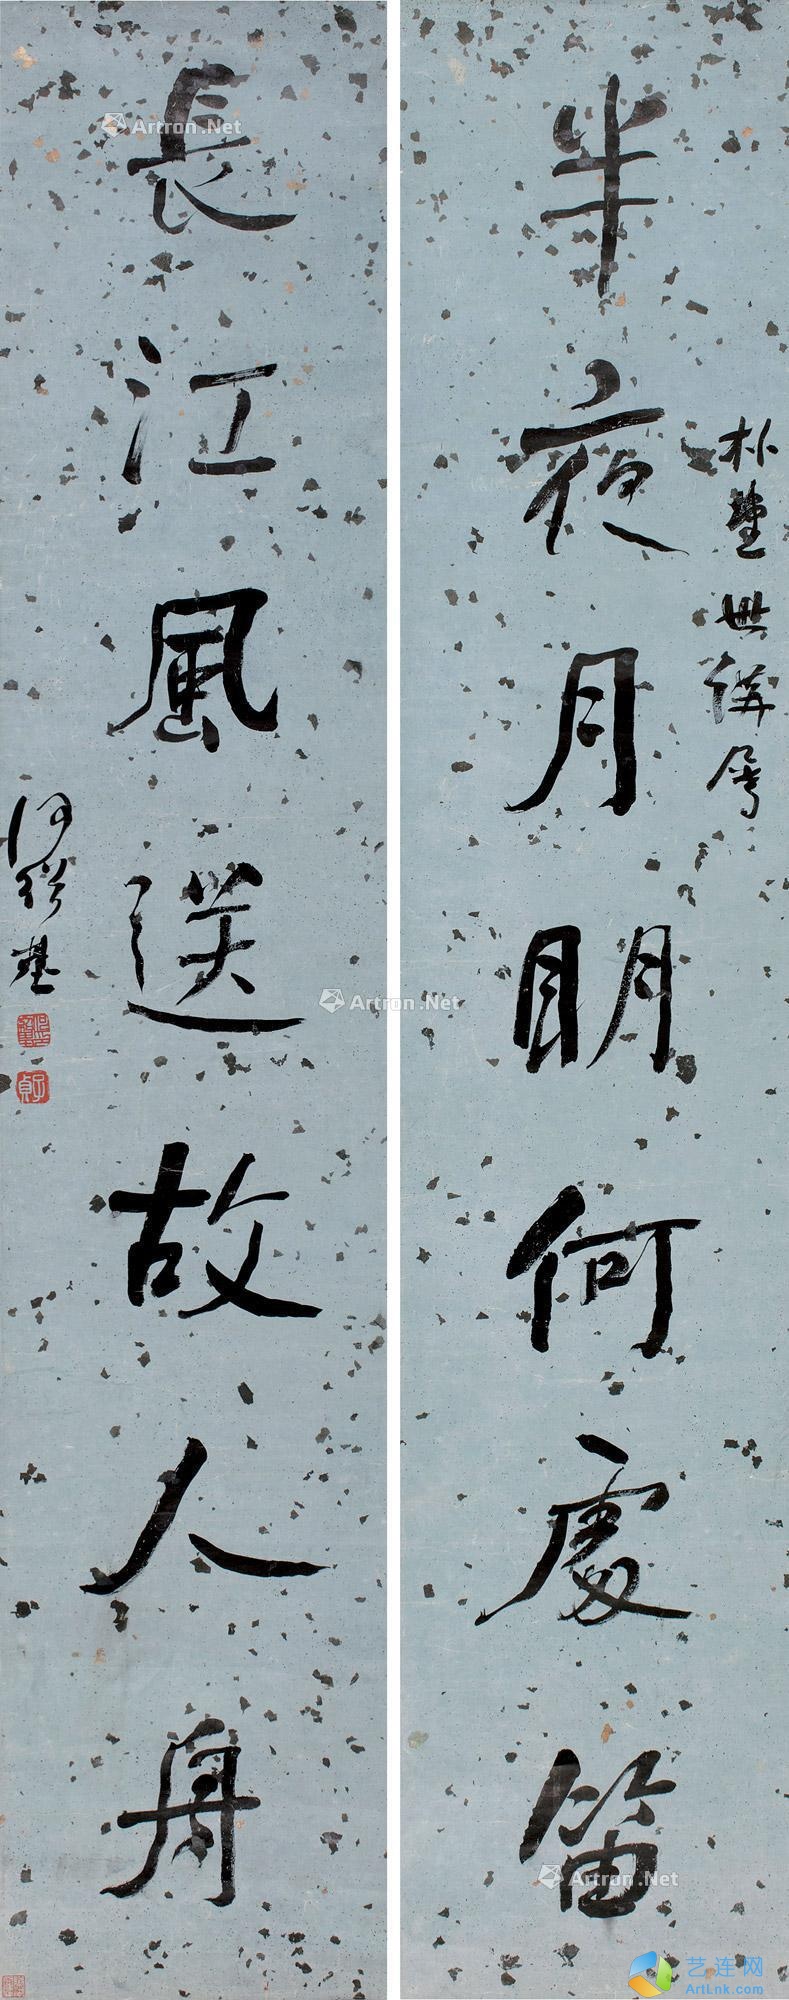 半夜月明何處笛
朴堂世講屬
長江風送故人舟
何紹基
何紹基印
子貞
Artron.Net
Artron.Net
Artron.Net
艺连网
ArtLnk.com